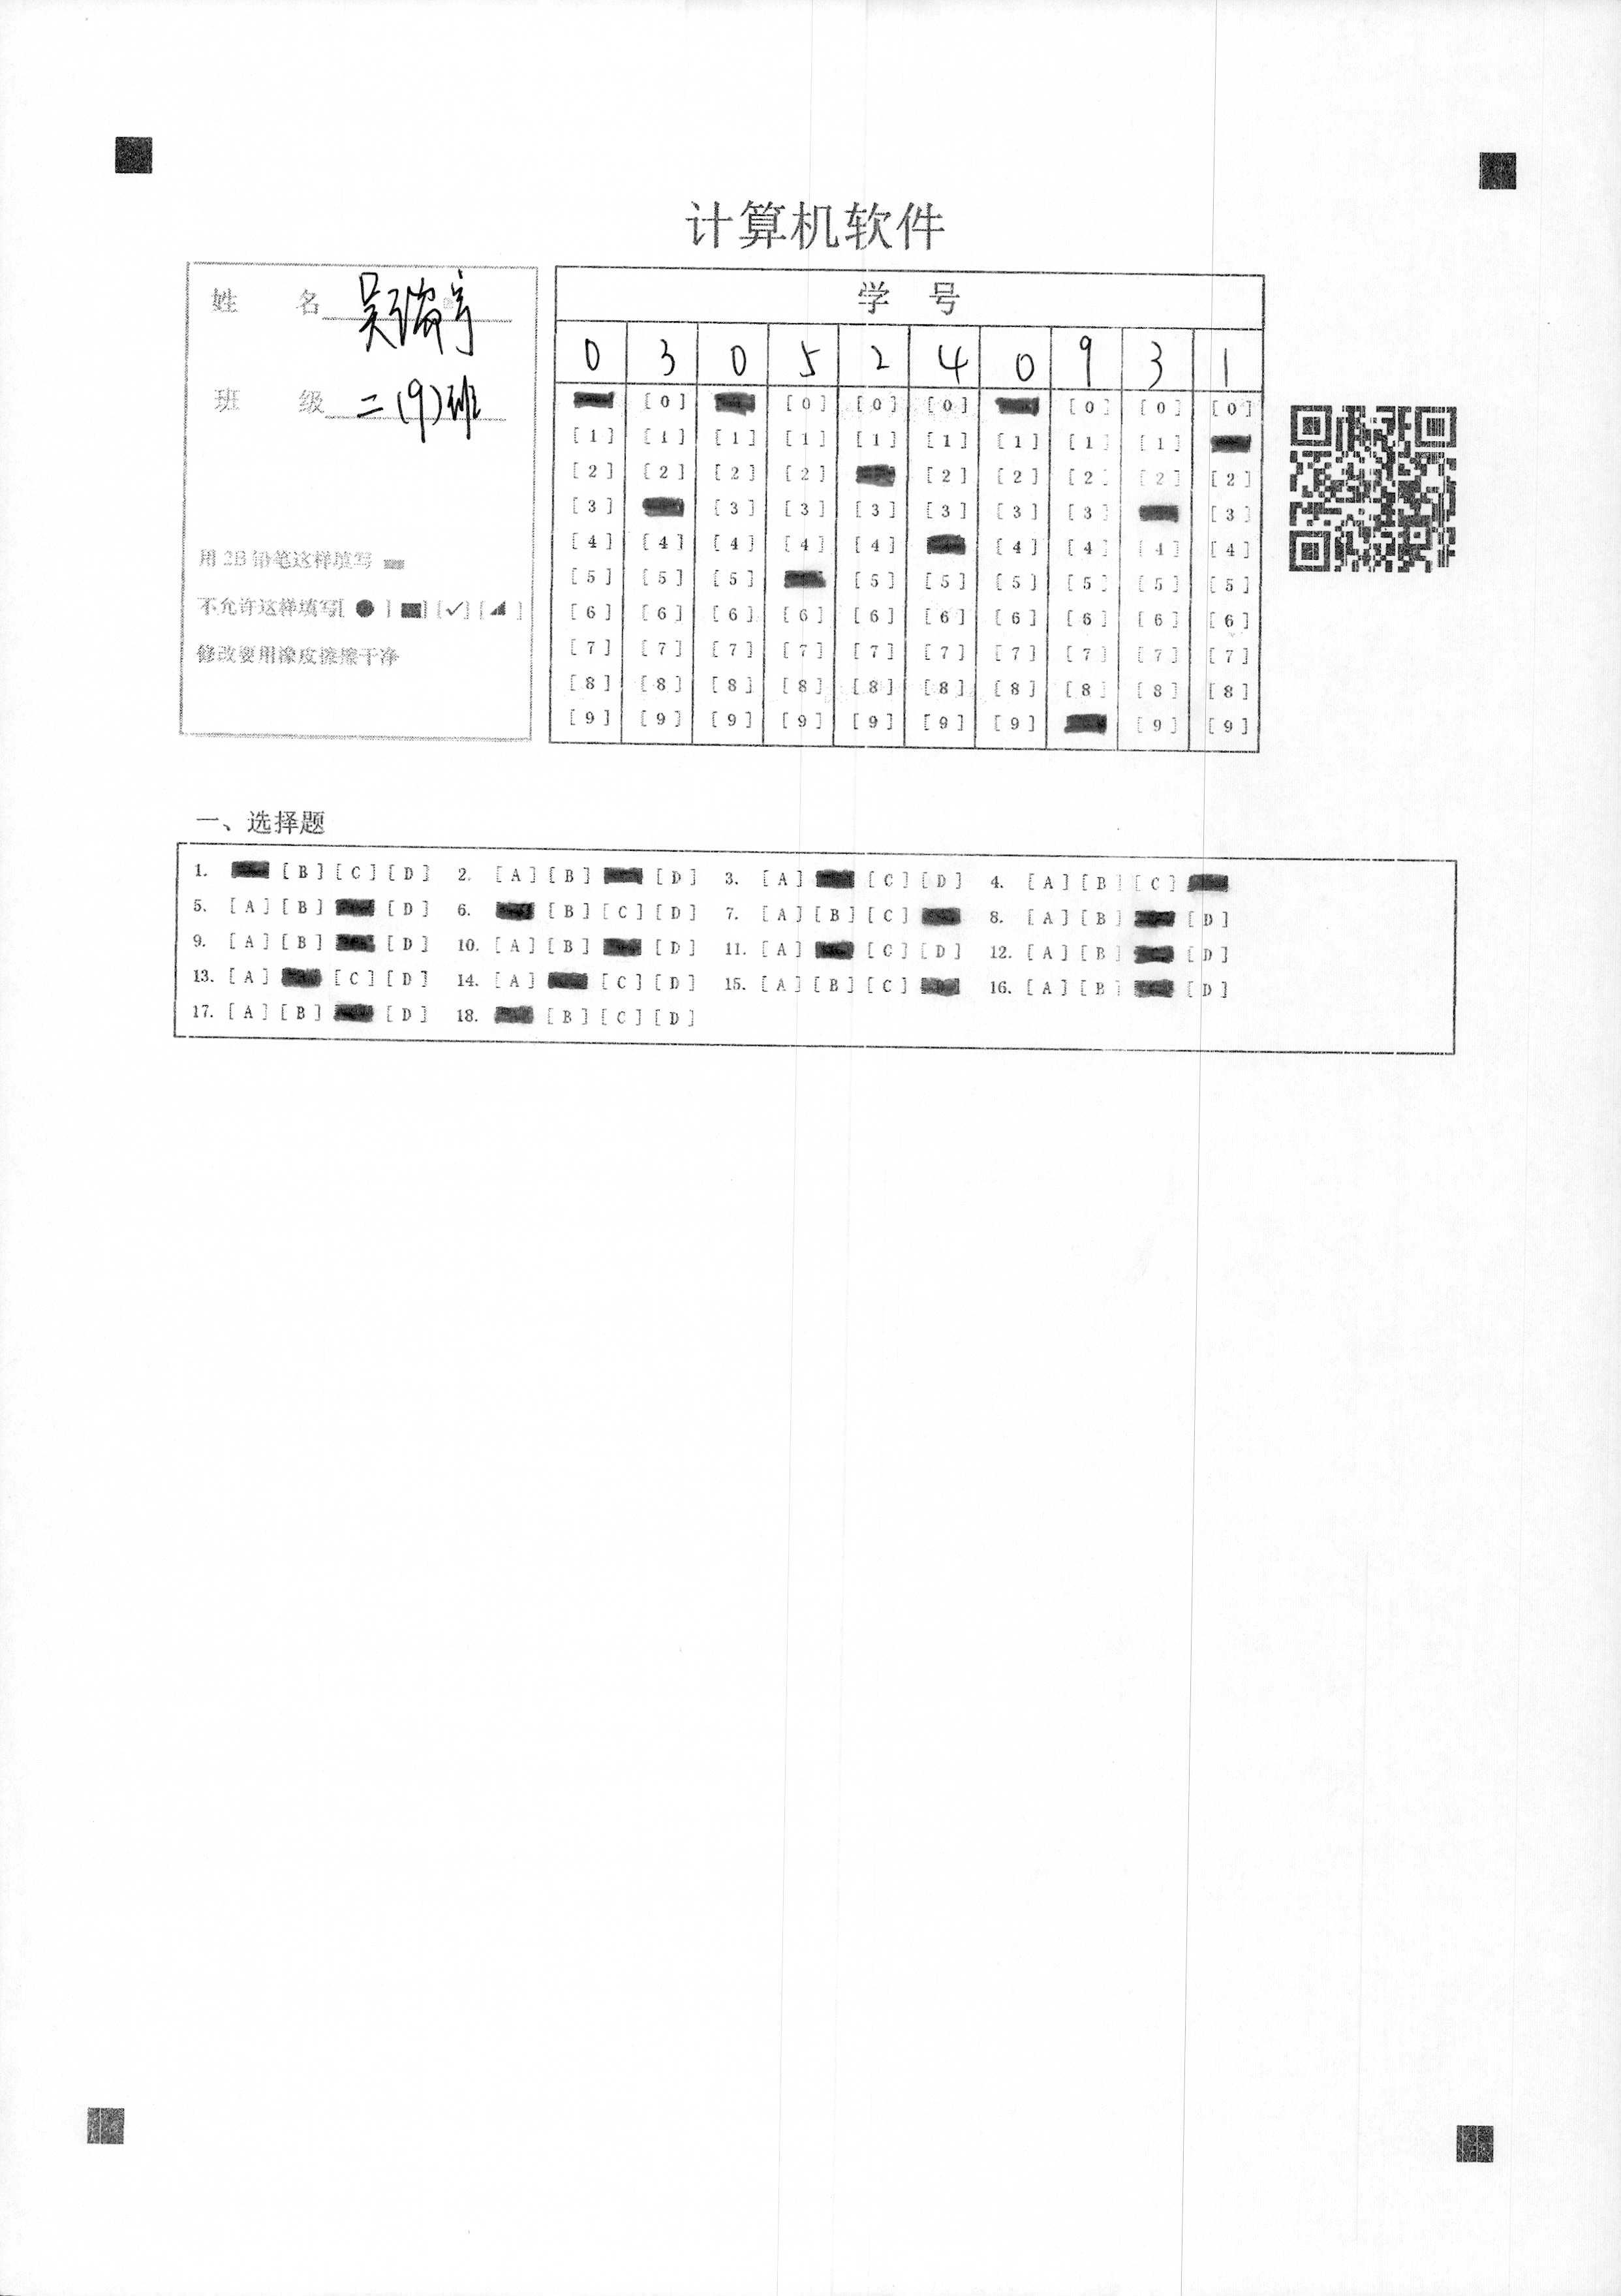 计算机软件
姓 名 吴
班 级 二(9)班
用2B铅笔这样填写
不允许这样填写[ ● ] [■] [✓] [◢ ]
修改要用橡皮擦擦干净
学 号
0 3 0 5 2 4 0 9 3 1
[0] [0] [0] [0] [0] [0] [0]
[1] [1] [1] [1] [1] [1] [1] [1] [1]
[2] [2] [2] [2] [2] [2] [2] [2] [2]
[3] [3] [3] [3] [3] [3] [3] [3]
[4] [4] [4] [4] [4] [4] [4] [4] [4]
[5] [5] [5] [5] [5] [5] [5] [5] [5]
[6] [6] [6] [6] [6] [6] [6] [6] [6] [6]
[7] [7] [7] [7] [7] [7] [7] [7] [7] [7]
[8] [8] [8] [8] [8] [8] [8] [8] [8] [8]
[9] [9] [9] [9] [9] [9] [9] [9] [9]
一、选择题
1. [B] [C] [D] 2. [A] [B] [D] 3. [A] [C] [D] 4. [A] [B] [C]
5. [A] [B] [D] 6. [B] [C] [D] 7. [A] [B] [C] 8. [A] [B] [D]
9. [A] [B] [D] 10. [A] [B] [D] 11. [A] [C] [D] 12. [A] [B] [D]
13. [A] [C] [D] 14. [A] [C] [D] 15. [A] [B] [C] 16. [A] [B] [D]
17. [A] [B] [D] 18. [B] [C] [D]